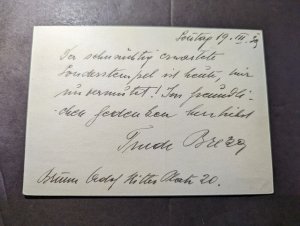 Sonntag 19. III. 39
Der sehnsüchtig erwartete
Sonderstempel ist heute, hier
unvermutet! Ihr freundli-
chen Gedenken herzlichst
Trude
Brünn Adolf Hitler Platz 20.